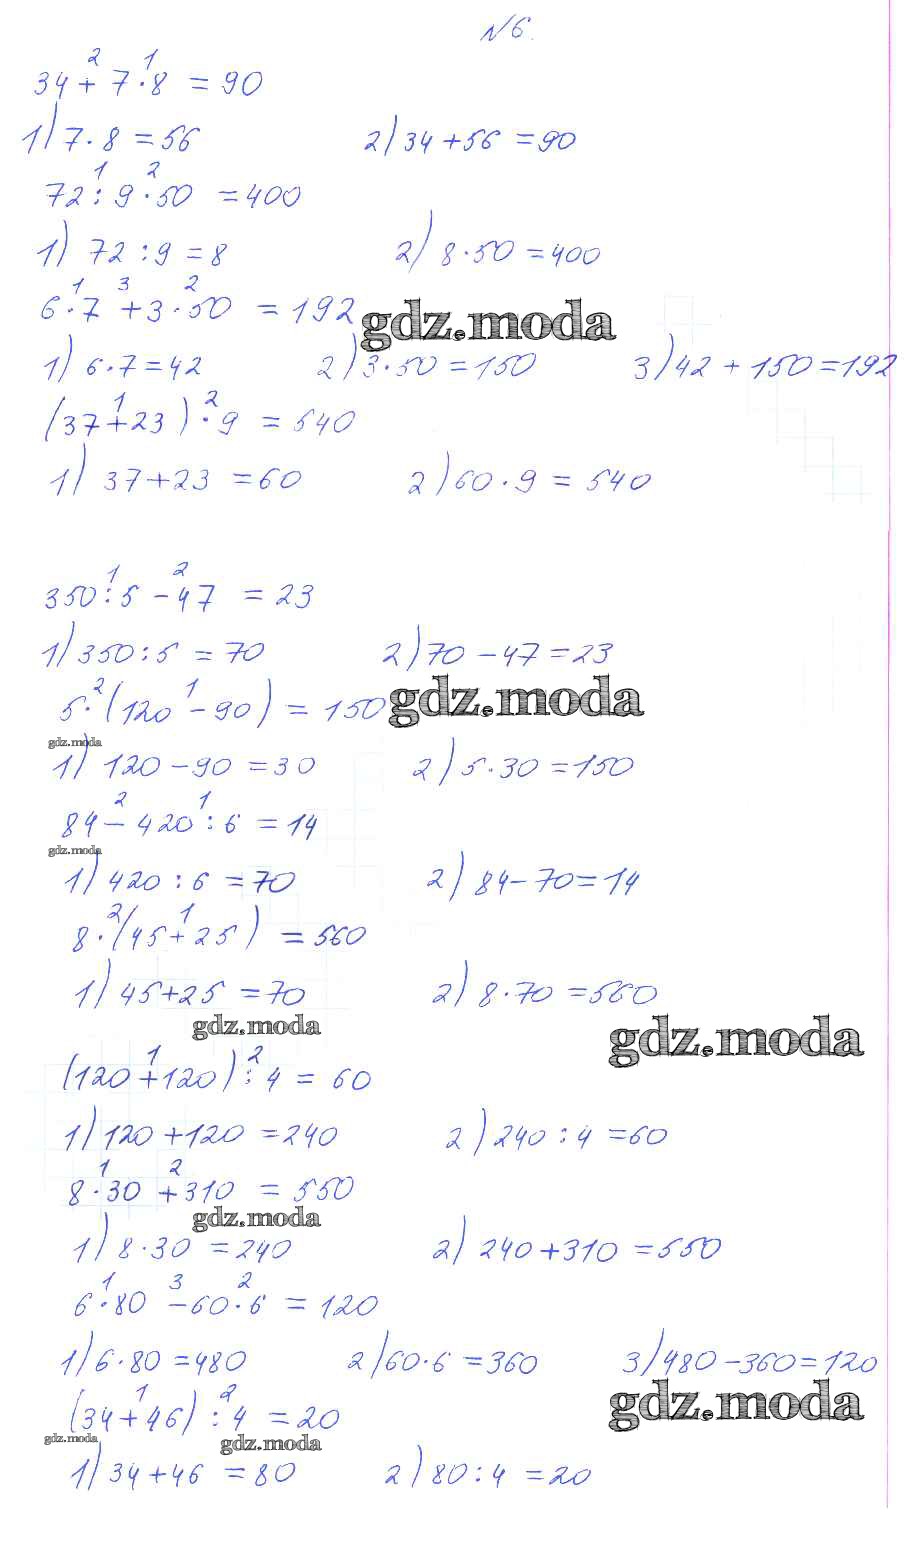 №6.
2 1
34 + 7 · 8 = 90
1) 7 · 8 = 56 2) 34 + 56 = 90
1 2
72 : 9 · 50 = 400
1) 72 : 9 = 8 2) 8 · 50 = 400
1 3 2
6 · 7 + 3 · 50 = 192
gdz.moda
1) 6 · 7 = 42 2) 3 · 50 = 150 3) 42 + 150 = 192
1 2
(37 + 23) · 9 = 540
1) 37 + 23 = 60 2) 60 · 9 = 540
1 2
350 : 5 - 47 = 23
1) 350 : 5 = 70 2) 70 - 47 = 23
2 1
5 · (120 - 90) = 150
gdz.moda
gdz.moda
1) 120 - 90 = 30 2) 5 · 30 = 150
2 1
84 - 420 : 6 = 14
gdz.moda
1) 420 : 6 = 70 2) 84 - 70 = 14
2 1
8 · (45 + 25) = 560
1) 45 + 25 = 70 2) 8 · 70 = 560
gdz.moda
gdz.moda
1 2
(120 + 120) : 4 = 60
1) 120 + 120 = 240 2) 240 : 4 = 60
1 2
8 · 30 + 310 = 550
gdz.moda
1) 8 · 30 = 240 2) 240 + 310 = 550
1 3 2
6 · 80 - 60 · 6 = 120
1) 6 · 80 = 480 2) 60 · 6 = 360 3) 480 - 360 = 120
gdz.moda
1 2
(34 + 46) : 4 = 20
gdz.moda
gdz.moda
1) 34 + 46 = 80 2) 80 : 4 = 20